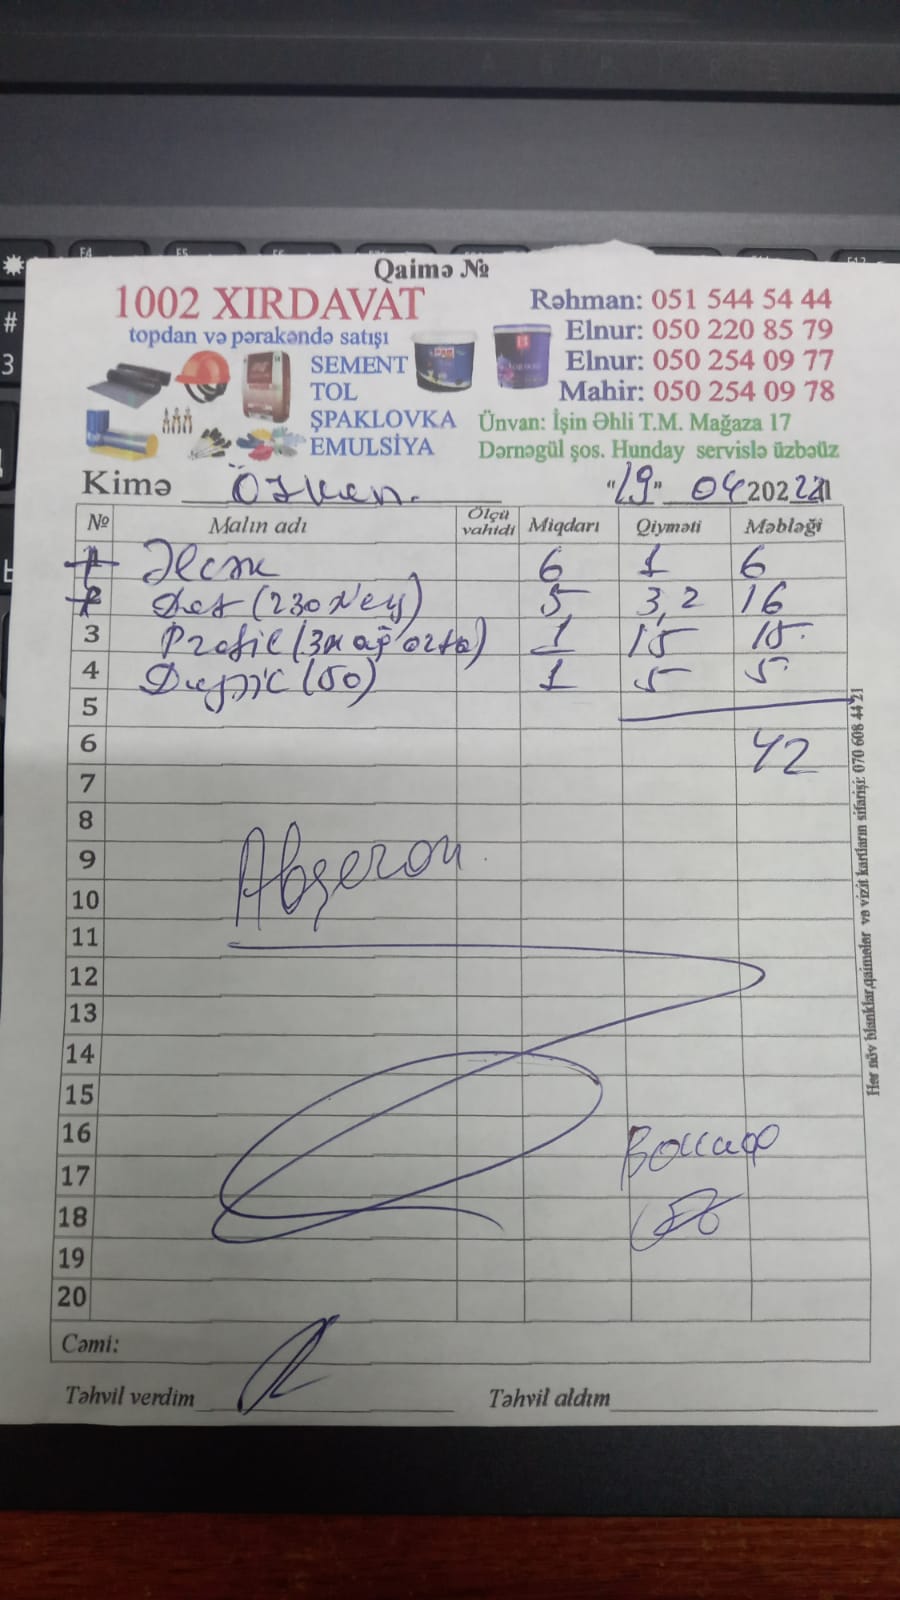 Qaimə №
1002 XIRDAVAT
topdan və pərakəndə satışı
SEMENT
TOL
ŞPAKLOVKA
EMULSİYA
Rəhman: 051 544 54 44
Elnur: 050 220 85 79
Elnur: 050 254 09 77
Mahir: 050 254 09 78
Ünvan: İşin Əhli T.M. Mağaza 17
Dərnəgül şos. Hunday servislə üzbəüz
Kimə "19" 04 202
№ Malın adı Ölçü vahidi Miqdarı Qiyməti Məbləği
1 6 1 6
2 5 3,2 16
3 Profil 1 15 15
4 (50) 1 5 5
5
6 42
7
8
9 Abşeron
10
11
12
13
14
15
16
17
18
19
20
Cəmi:
Təhvil verdim Təhvil aldım
Hər növ blanklar,qaimələr və vizit kartların sifarişi: 070 608 44 21